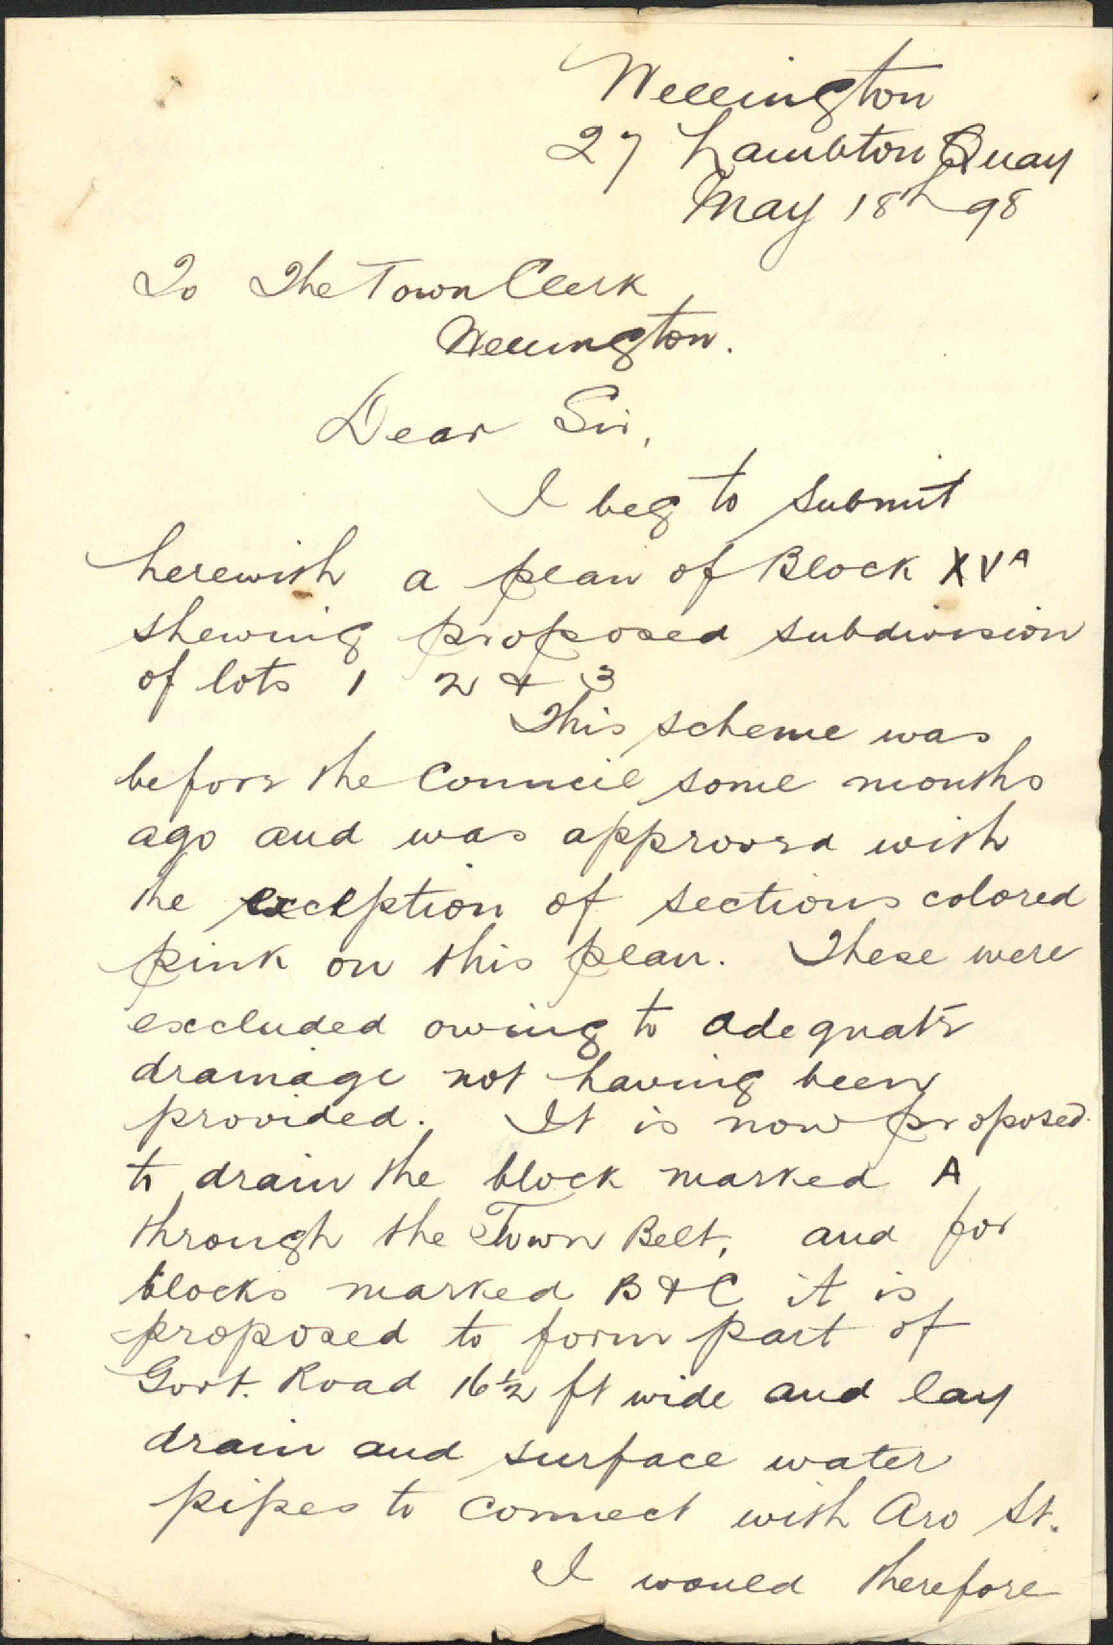 Wellington
27 Lambton Quay
May 18th 98
To The Town Clerk
Wellington.
Dear Sir,
I beg to submit
herewith a plan of Block XVA
shewing proposed subdivision
of lots 1 2 & 3
This scheme was
before the Council some months
ago and was approved with
the exception of sections colored
pink on this plan. These were
excluded owing to adequate
drainage not having been
provided. It is now proposed
to drain the block marked A
through the Town Belt, and for
blocks marked B & C it is
proposed to form part of
Govt. Road 16½ ft wide and lay
drain and surface water
pipes to connect with Aro St.
I would therefore